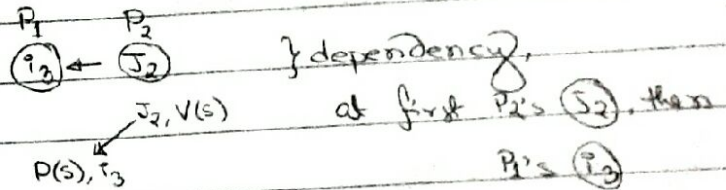 P1 P2
i3 ← J2 } dependency,
J2, V(s) at first P2's J2, then
P(s), i3 P1's i3